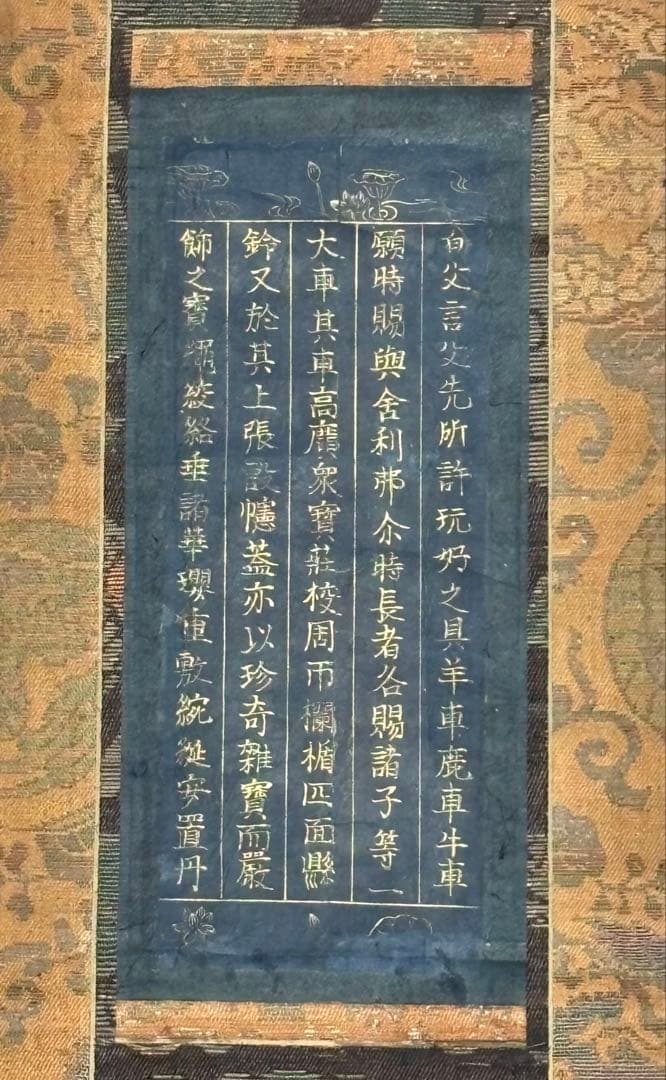 白父言父先所許玩好之具羊車鹿車牛車
願時賜與舍利弗尒時長者各賜諸子等一
大車其車高廣衆寶莊校周帀欄楯四面懸
鈴又於其上張設幰蓋亦以珍奇雜寶而嚴
飾之寶繩絞絡垂諸華瓔重敷綩綖安置丹